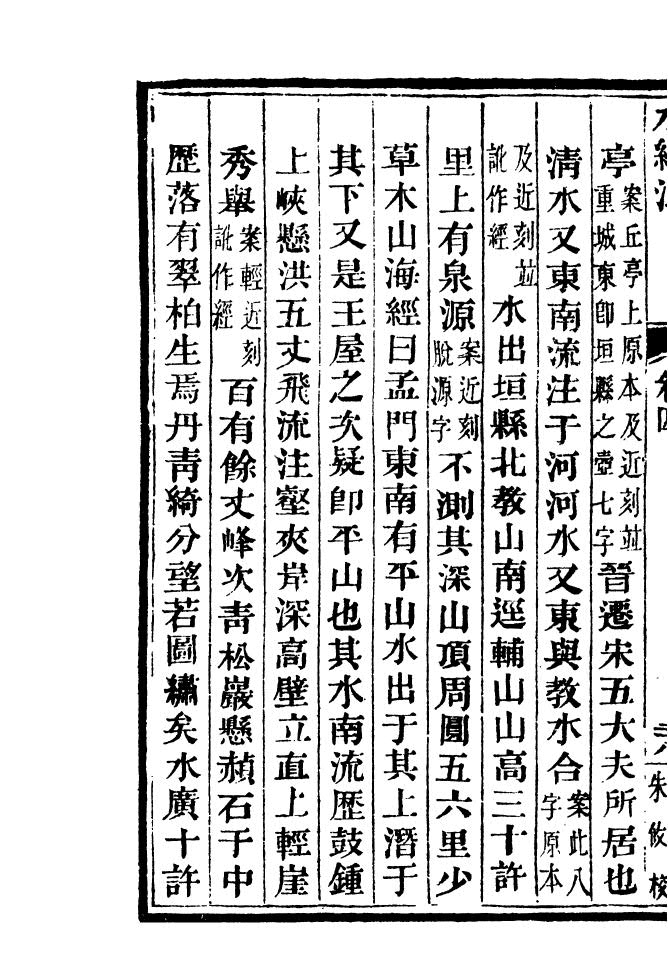 水經注 卷四 朱攸校
亭案丘亭上原本及近刻並重城東卽垣縣之壺七字晉遷宋五大夫所居也
淸水又東南流注于河河水又東與教水合案此八字原本
及近刻並訛作經水出垣縣北教山南逕輔山山高三十許
里上有泉源案近刻脫源字不測其深山頂周圓五六里少
草木山海經曰孟門東南有平山水出于其上潛于
其下又是王屋之次疑卽平山也其水南流歷鼓鍾
上峽懸洪五丈飛流注壑夾岸深高壁立直上輕崖
秀舉案輕近刻訛作經百有餘丈峰次靑松巖懸赬石于中
歷落有翠柏生焉丹靑綺分望若圖繡矣水廣十許